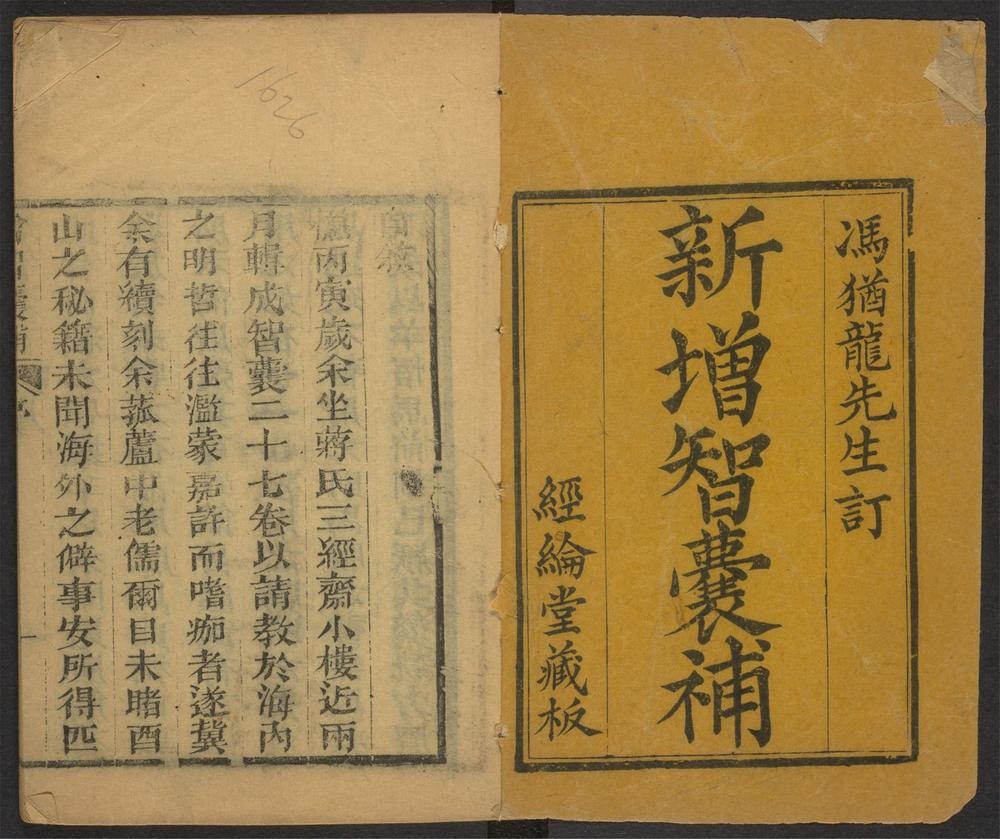 馮猶龍先生訂
新增智囊補
經綸堂藏板
1626
憶丙寅歲余坐蔣氏三經齋小樓近兩
月輯成智囊二十七卷以請教於海內
之明哲往往濫蒙嘉許而嗜痂者遂冀
余有續刻余菰蘆中老儒爾目未睹酉
山之秘籍未聞海外之僻事安所得匹
智囊補